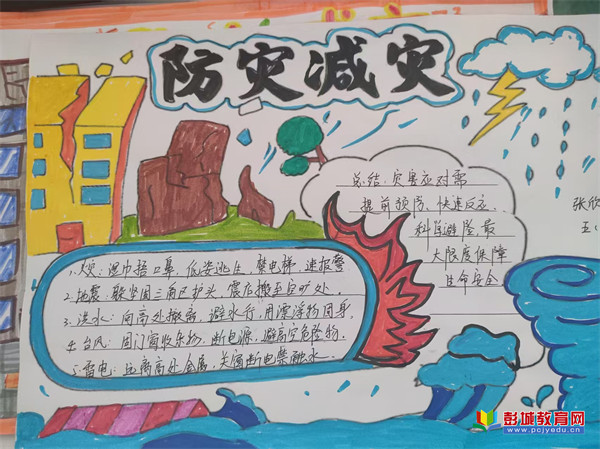 防灾减灾
总结：灾害应对需
提前预防、快速反应、
科学避险,最
大限度保障
生命安全
张欣
五(
1.火灾：湿巾捂口鼻，低姿逃生，禁电梯，速报警
2.地震：躲坚固三角区护头，震后撤至空旷处.
3.洪水：向高处撤离，避水行,用漂浮物固身.
4.台风：固门窗收杂物，断电源，避高空危险物.
5.雷电：远离高处金属,关窗断电禁触水.
彭城教育网
www.pcjyedu.cn